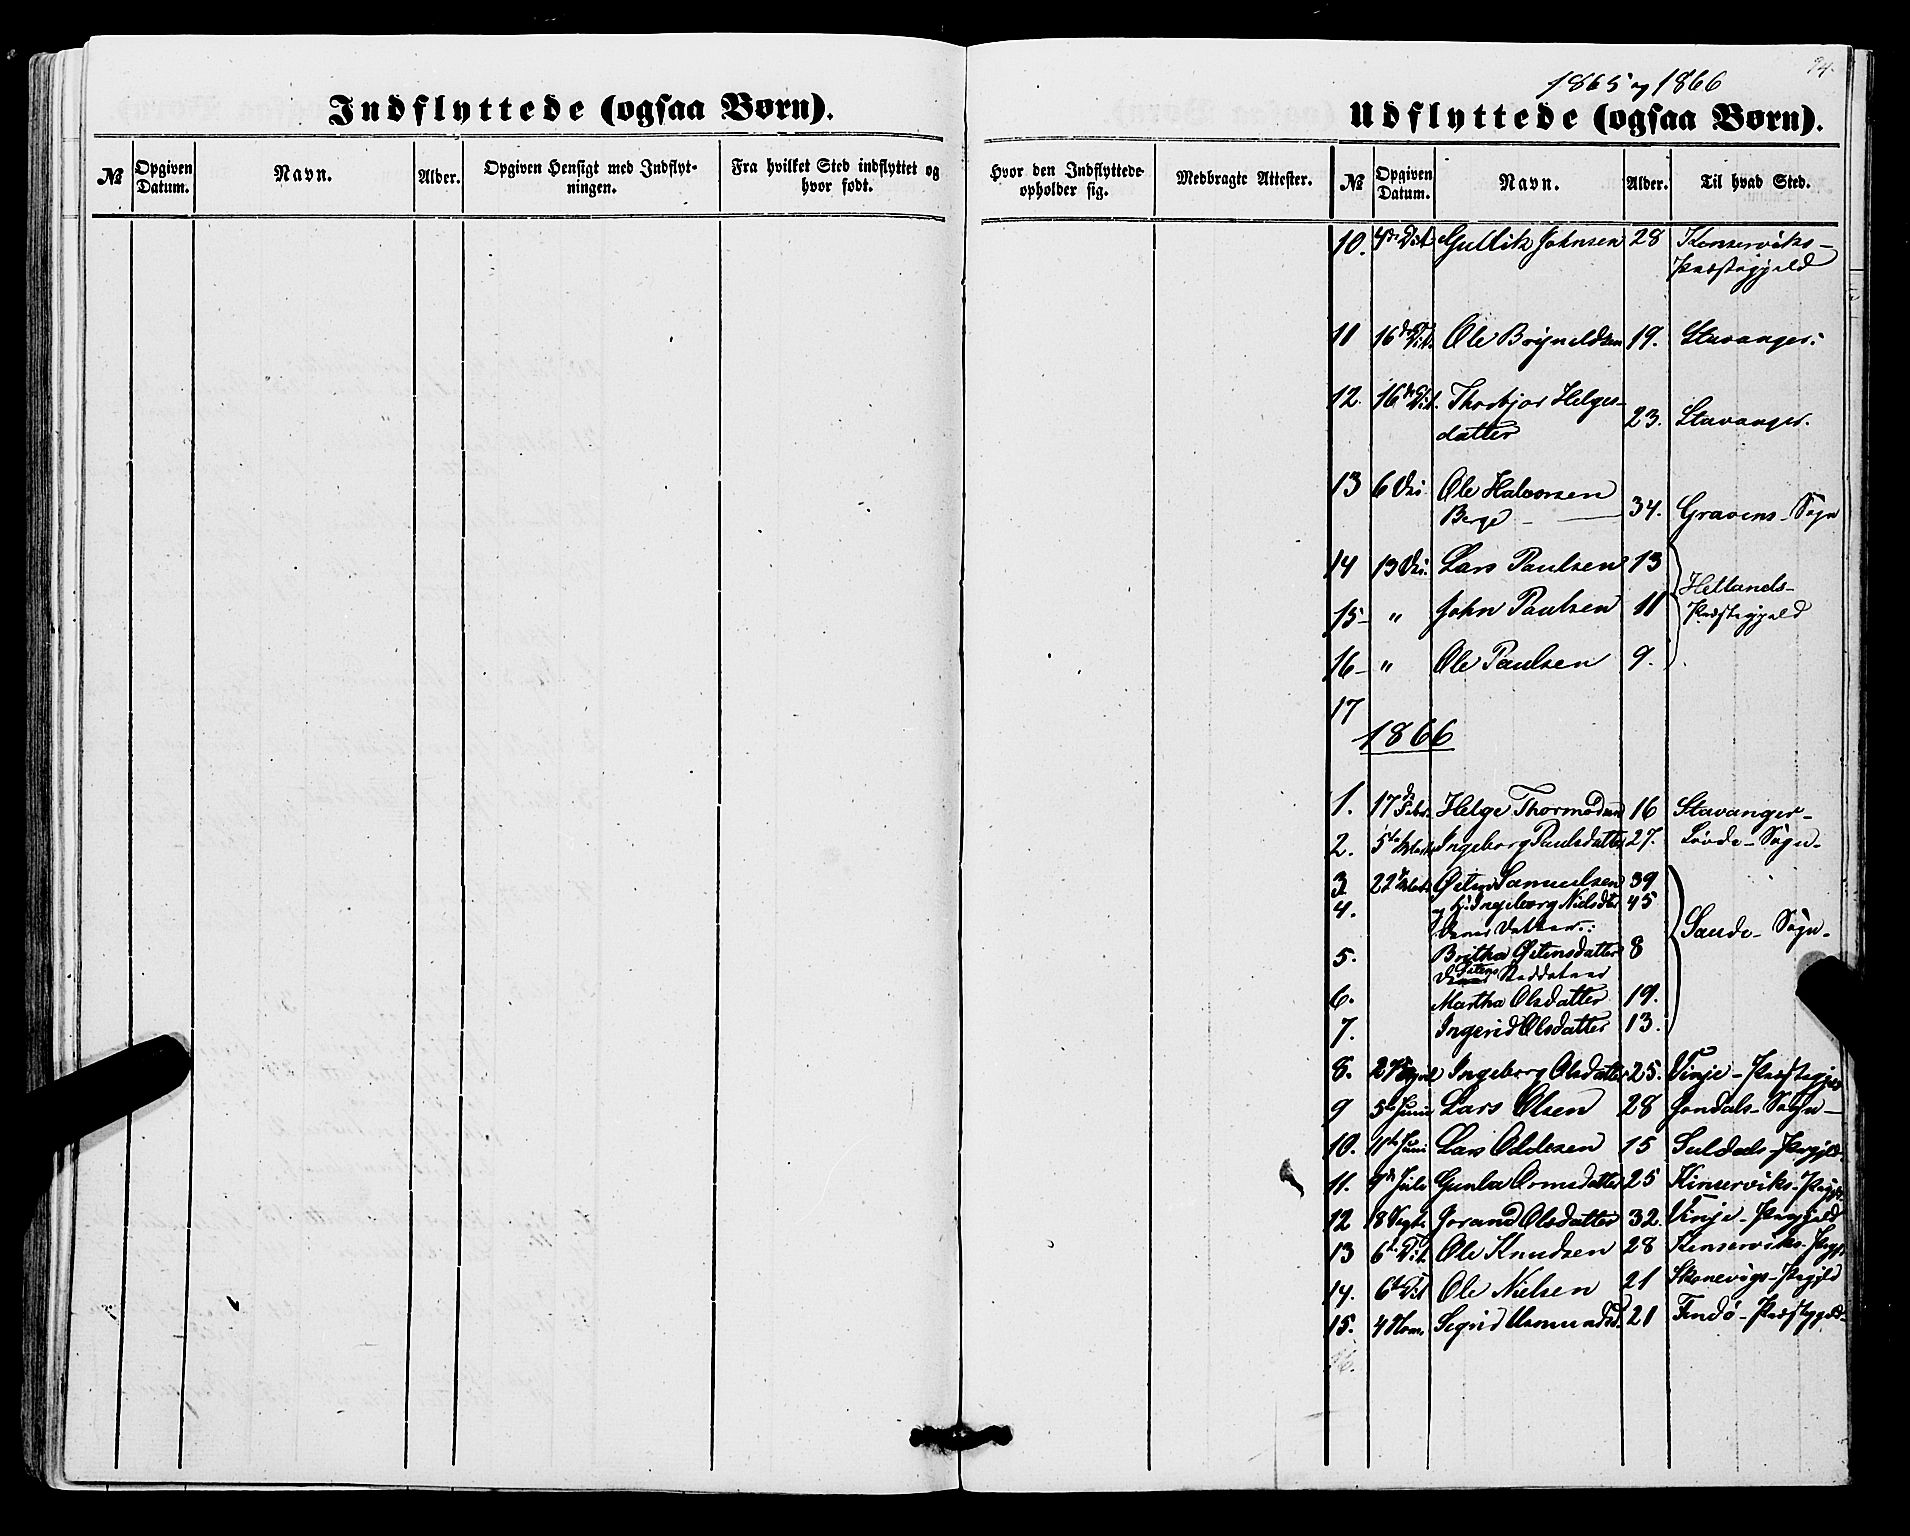 Indflyttede (ogsaa Børn).
№ Opgiven Datum. Navn. Alder. Opgiven Hensigt med Indflytningen. Fra hvilket Sted indflyttet og hvor født.
94.
1865 og 1866
Udflyttede (ogsaa Børn).
Hvor den Indflyttede opholder sig. Medbragte Attester. № Opgiven Datum. Navn. Alder. Til hvad Sted.
10. 4de Oct Gullik Johnsen 28 Kinserviks-
Præstegjeld
11 16de Oct. Ole Brynildsen 19. Stavanger.
12. 16de Oct. Thorbjør Helges-
datter 23. Stavanger.
13 6 Dec. Ole Halvorsen
Berge 34. Gravens-Sogn
14 13 Dec. Lars Paulsen 13
15- " John Paulsen 11 Hetlands-
Præstegjeld
16- " Ole Paulsen 9.
17
1866
1. 17de Febr. Helge Thormodsen 16 Stavanger-
2. 5te Marts Ingeborg Paulsdatter 27. Søvde-Sogn-
3 22 Marts Østen Samuelsen 39
4. og H. Ingeborg Nielsdtr 45
Deres Datter: Saude-Sogn-
5. Britha Østensdatter 8
Østens Steddøtre
6. Martha Olsdatter 19.
7. Ingerid Olsdatter 13.
8. 27 April Ingeborg Olsdatter 25. Vinje-Præstegjeld
9 5te Juni Lars Olsen 28 Jondals-Sogn-
10. 11te Juni Lars Oddesen 15 Suldals-Prgjld.
11. 7de Juli Gunla Ormsdatter 25 Kinserviks-Prgjld
12 18 Sept. Jorand Olsdatter 32. Vinje-Prgjeld
13 6te Oct. Ole Knudsen 28 Kinserviks-Prgj.
14. 6te Oct Ole Nielsen 21 Skonevigs-Prgjld
15. 4 Nov. Sigrid Asmundsd. 21 Findø-Præstegjeld-
16.